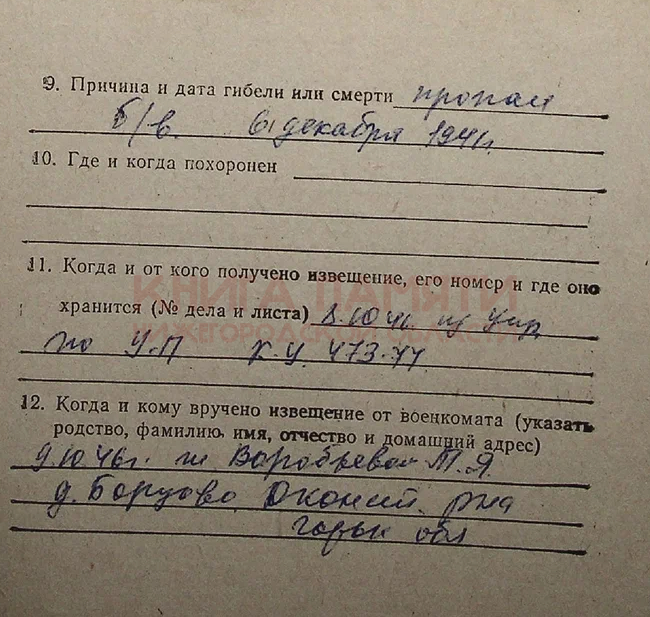 9. Причина и дата гибели или смерти пропал
б/в. 6 декабря 1941г.
10. Где и когда похоронен
11. Когда и от кого получено извещение, его номер и где оно
КНИГА ПАМЯТИ
хранится (№ дела и листа) 8.10 46. из Упр
НИЖЕГОРОДСКОЙ ОБЛАСТИ
по У.П 473-77
12. Когда и кому вручено извещение от военкомата (указать
родство, фамилию, имя, отчество и домашний адрес)
9.10 46г. Воробьевой М.Я.
д. Борцово р-на
Горьк обл